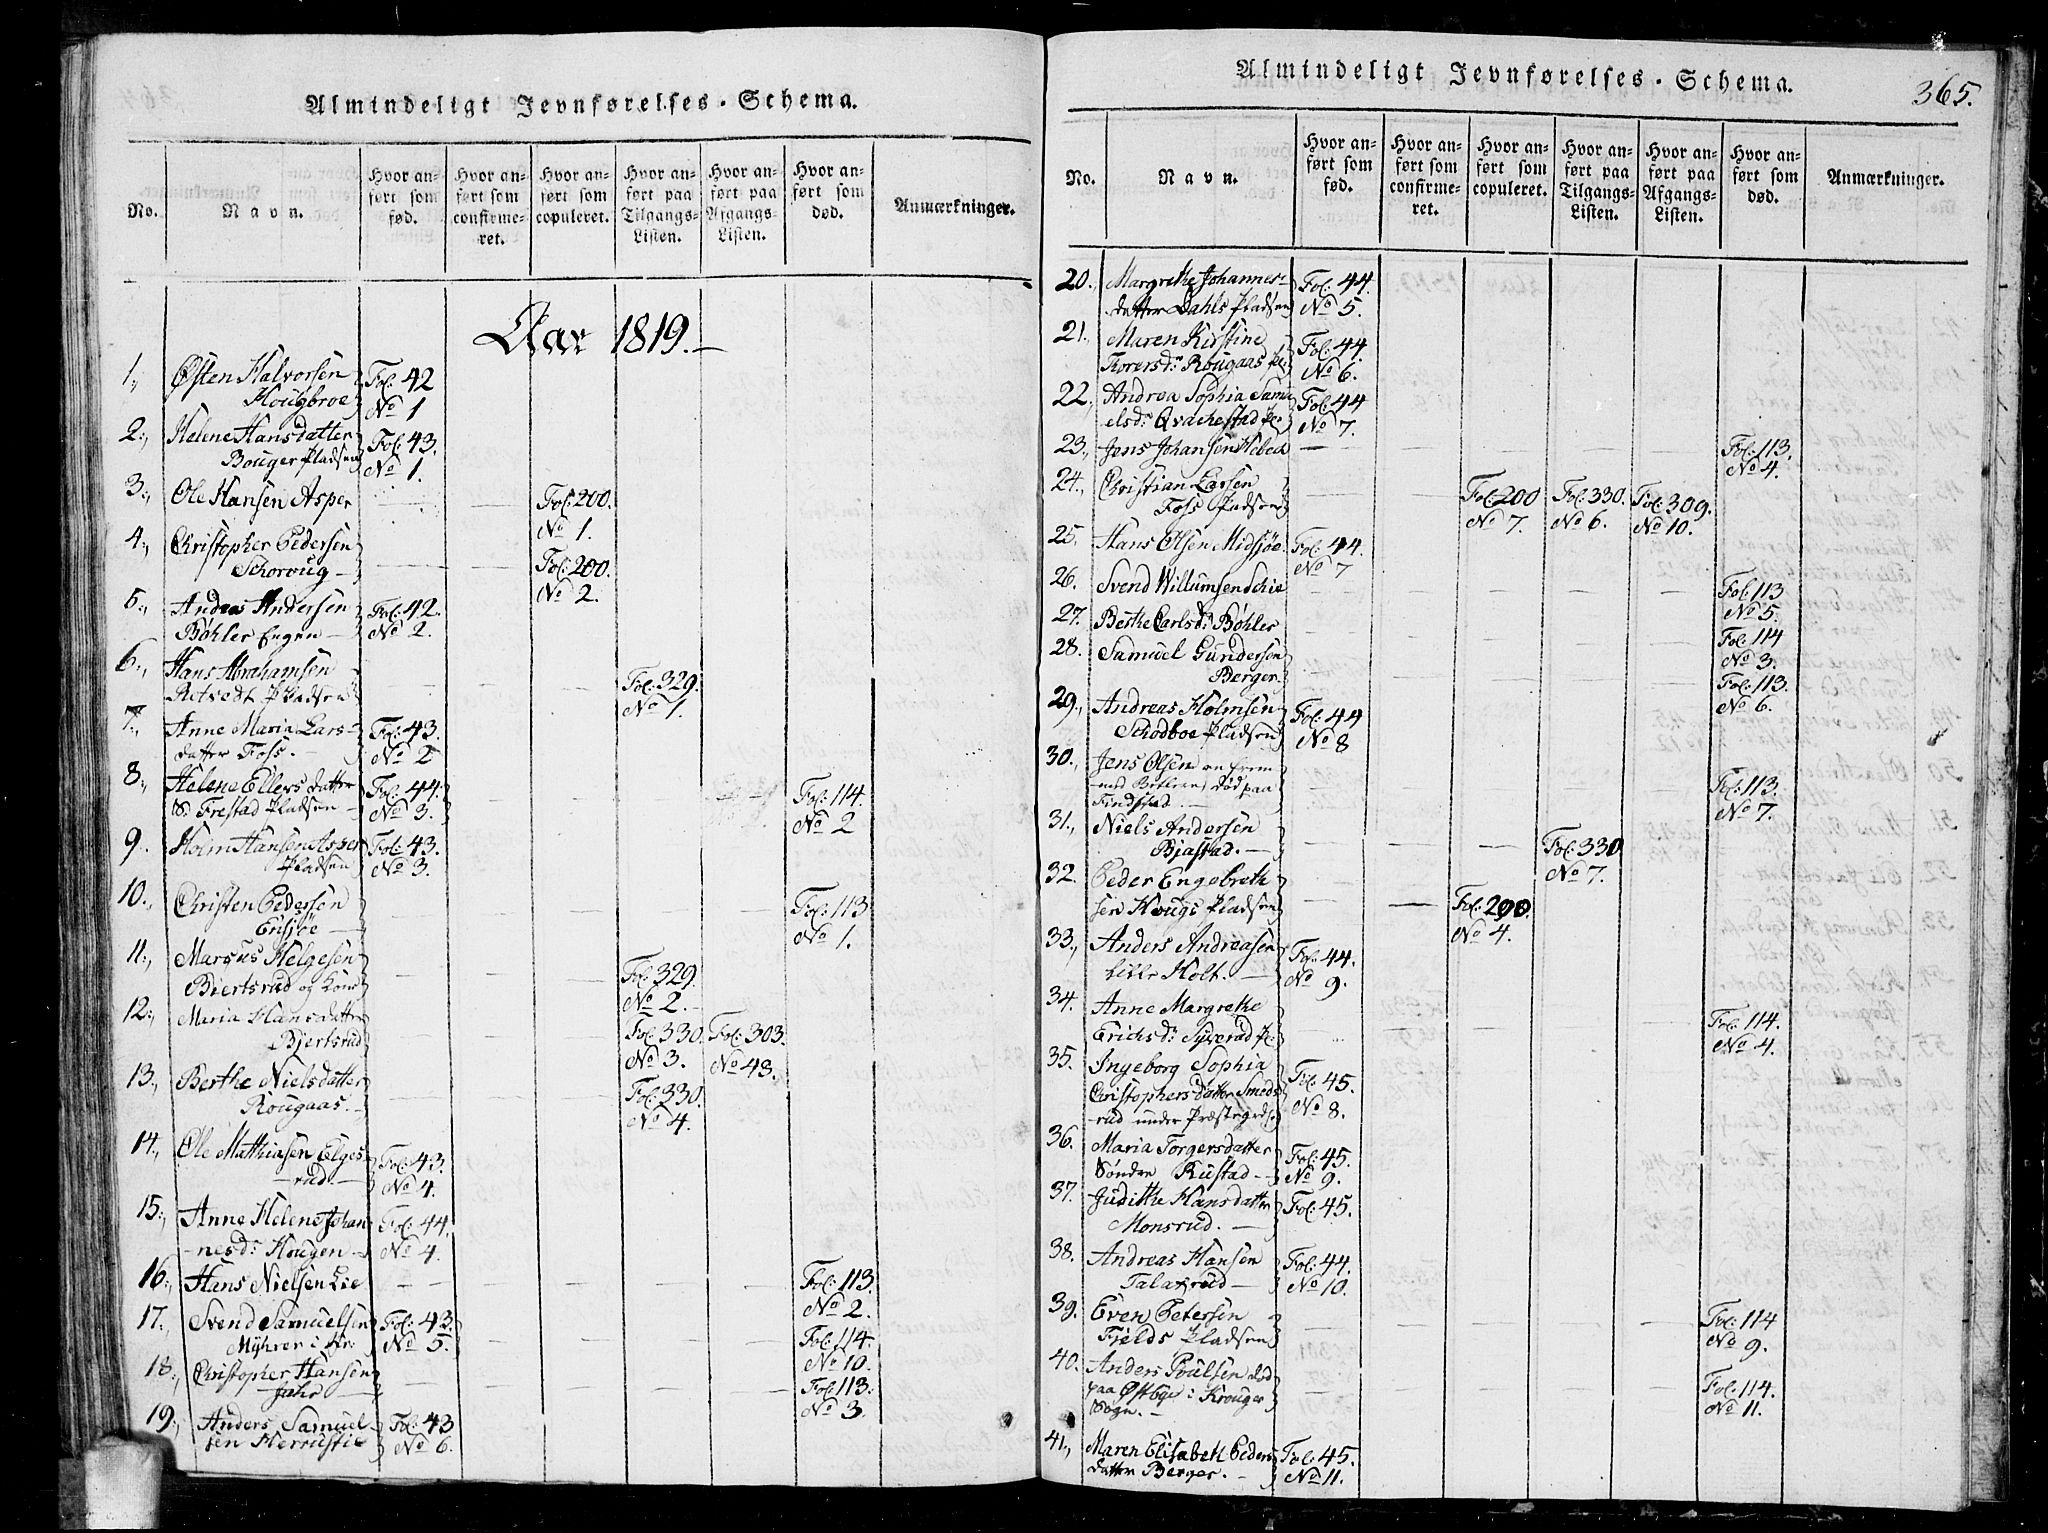 Almindeligt Jevnførelses-Schema.
No.
Navn.
Hvor anført som fød.
Hvor anført som confirmeret.
Hvor anført som copuleret.
Hvor anført paa Tilgangs-Listen.
Hvor anført paa Afgangs-Listen.
Hvor anført som død.
Anmærkninger.
Aar 1819.
1., Østen Halvorsen Fol: 42
Hougbroe No 1
2., Helene Hansdatter Fol: 43.
Bouger Pladsen No 1.
3., Ole Hansen Asper — — Fol: 200.
No 1.
4., Christopher Pedersen
Schoroug — — — Fol: 200.
No 2.
5., Andreas Andersen Fol: 42.
Bøhler Engen — No 2.
6., Hans Abrahamsen
Retvedt Pladsen — — — Fol: 329.
No 1.
7., Anne Maria Lars- Fol: 43.
datter Foss. — No 2
8., Helene Ellersdatter Fol: 44. — — — — Fol: 114.
S: Frestad Pladsen — No 3. No 2
9. Holm Hansen Asper Fol: 43.
Pladsen No 3.
10., Christen Pedersen Fol: 113
Ensjøe — — — — — — No 1.
11., Marcus Helgesen
Biertsrud og Kone — — — Fol: 329.
No 2. —
12., Maria Hansdatter Fol: 330. Fol: 303.
Bjertsrud — — — No 3. No 43.
13., Berthe Nielsdatter Fol: 330.
Rougaas. — — — — No 4.
14., Ole Mathiasen Elges- Fol: 43.
rud. — No 4.
15., Anne Helene Johan Fol: 44.
nesd: Hougen — No 4.
16., Hans Nielsen Lie — — — — — Fol: 113.
No 2.
17., Svend Samuelsen Fol: 43. — — — — Fol: 114.
Myhrer i No 5. No 10.
18., Christopher Hansen Fol: 113.
Jahr — — — — — — No 3.
19., Anders Samuel Fol: 43
sen Herrustie No 6.
Almindeligt Jevnførelses-Schema.
365.
No.
Navn.
Hvor anført som fød.
Hvor anført som confirmeret.
Hvor anført som copuleret.
Hvor anført paa Tilgangs-Listen.
Hvor anført paa Afgangs-Listen.
Hvor anført som død.
Anmærkninger.
20., Margrethe Johannes- Fol: 44.
datter Dahls Pladsen No 5.
21., Maren Kirstine Fol: 44.
Torersd: Rougaas Pl: No 6.
22., Andrea Sophia Samu Fol: 44
elsd: Qvachestad Pl: No 7.
23., Jens Johansen Hebed — — — — — — Fol: 113.
No 4.
24., Christian Larsen — — Fol: 200 Fol: 330. Fol: 309.
Foss Pladsen No 7. No 6. No 10.
25. Hans Olsen Midsjøe Fol: 44.
No 7
26. Svend Willumsen Schie — — — — — Fol: 113
No 5.
27. Berthe Carlsd: Bøhler — — — — — Fol: 114
No 3.
28. Samuel Gundersen Fol: 113.
Berger. No 6.
29., Andreas Holmsen Fol: 44
Schodboe Pladsen No 8
30., Jens Olsen en frem
med Betlere død paa — — — — — Fol: 113.
Findstad. — No 7.
31., Niels Andersen
Bjastad. — — — — Fol: 330
No 7.
32. Peder Engebreth
sen Hougs Pladsen — — Fol: 200.
No 4.
33., Anders Andreasen Fol: 44.
Lille Holt. — No 9.
34. Anne Margrethe Fol: 114.
Erichsd: Syverud Pl: No 4.
35. Ingeborg Sophia Fol: 45.
Christophersdatter Smeds No 8.
rud under Præstegrdsg
36. Maria Torgersdatter Fol: 45.
Søndre Rustad — No 9.
37. Judithe Hansdatter Fol: 45.
Monsrud. —
38. Andreas Hansen Fol: 44.
Talaxrud — No 10.
39. Even Petersen Fol: 114
Fjelds Pladsen — — — — — No 9.
40. Anders Poulsen død Fol: 114.
paa Østbye i Krouger No 11.
Sogn. —
41., Maren Elisabeth Peders Fol: 45.
datter Berger. — No 11.